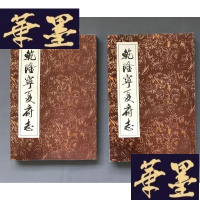 華墨
乾隆寧夏府志
乾隆寧夏府志
華墨